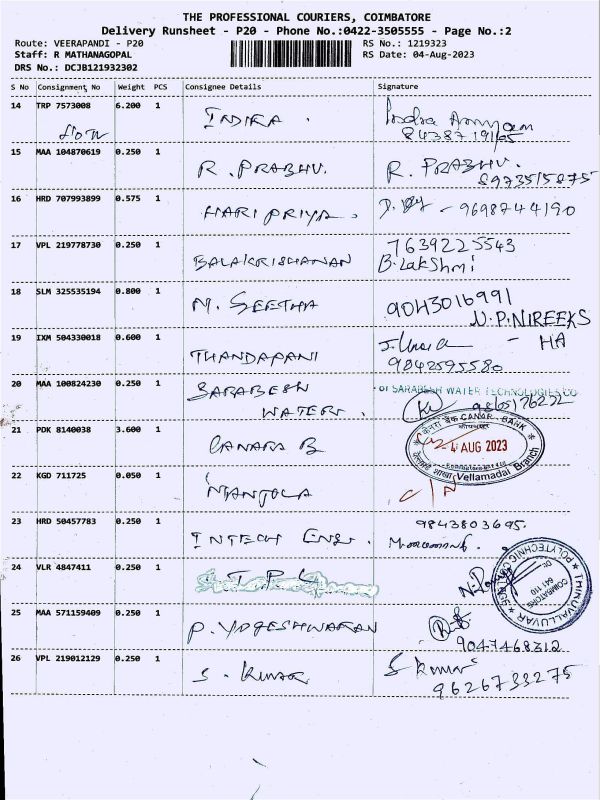 THE PROFESSIONAL COURIERS, COIMBATORE
Delivery Runsheet - P20 - Phone No.:0422-3505555 - Page No.:2
Route: VEERAPANDI - P20 RS No.: 1219323
Staff: R MATHANAGOPAL RS Date: 04-Aug-2023
DRS No.: DCJB121932302
S No Consignment No Weight PCS Consignee Details Signature
14 TRP 7573008 6.200 1 INDIRA . Indra
15 MAA 104870619 0.250 1 R. PRABHU. R. PRABHU.
8973515875
16 HRD 707993899 0.575 1 HARI PRIYA . - 9698744190
17 VPL 219778730 0.250 1 BALAKRISHANAN 7639225543
B.Lakshmi
18 SLM 325535194 0.800 1 M. SEETHA 9043016991
N.P.NIREEKS
- HA
19 IXM 504330018 0.600 1 THANDAPANI
9042595580
20 MAA 100824230 0.250 1 SARABESH WATER . or SARABESH WATER TECHNOLOGIES CO
21 PDK 8140038 3.600 1 CANARA B CANARA BANK
4 AUG 2023
Vellamadai Branch
22 KGD 711725 0.050 1 MANJULA
23 HRD 50457783 0.250 1 INTECH ENGI . 9843803695.
24 VLR 4847411 0.250 1 T P C THIRUVALLUVAR
POLYTECHNIC
COIMBATORE
641 110
25 MAA 571159409 0.250 1 P. YOGESHWARAN
9047468312
26 VPL 219012129 0.250 1 S. KUMAR S kumar
9626733275